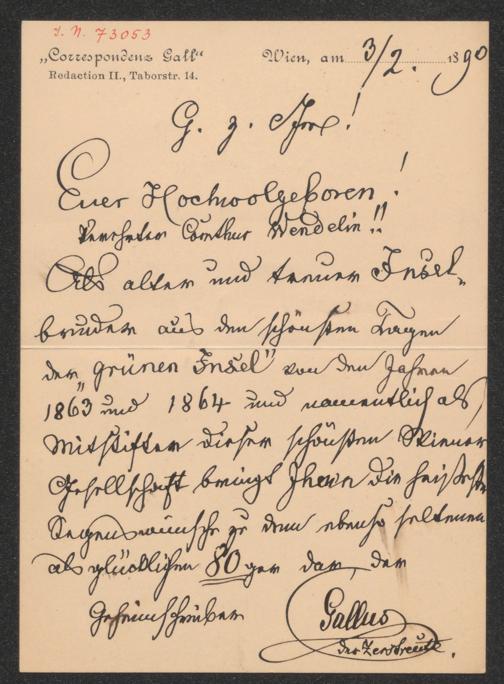 I. N. 73053
„Correspondenz Gall“
Redaction II., Taborstr. 14.
Wien, am 3/2. 1890
G. z.
Euer Hochwolgeboren!
Verehrter Comthur Wendelin!!
Als alter und treuer Insel-
bruder aus den schönsten Tagen
der „grünen Insel“ von den Jahren
1863 und 1864 und namentlich als
Mitstifter dieser schönsten Wiener
Gesellschaft bringt Ihnen die heißesten
Segenswünsche zu dem ebenso seltenen
als glücklichen 80ger dar, der
Geheimschreiber
Gallus
der Zerstreute.